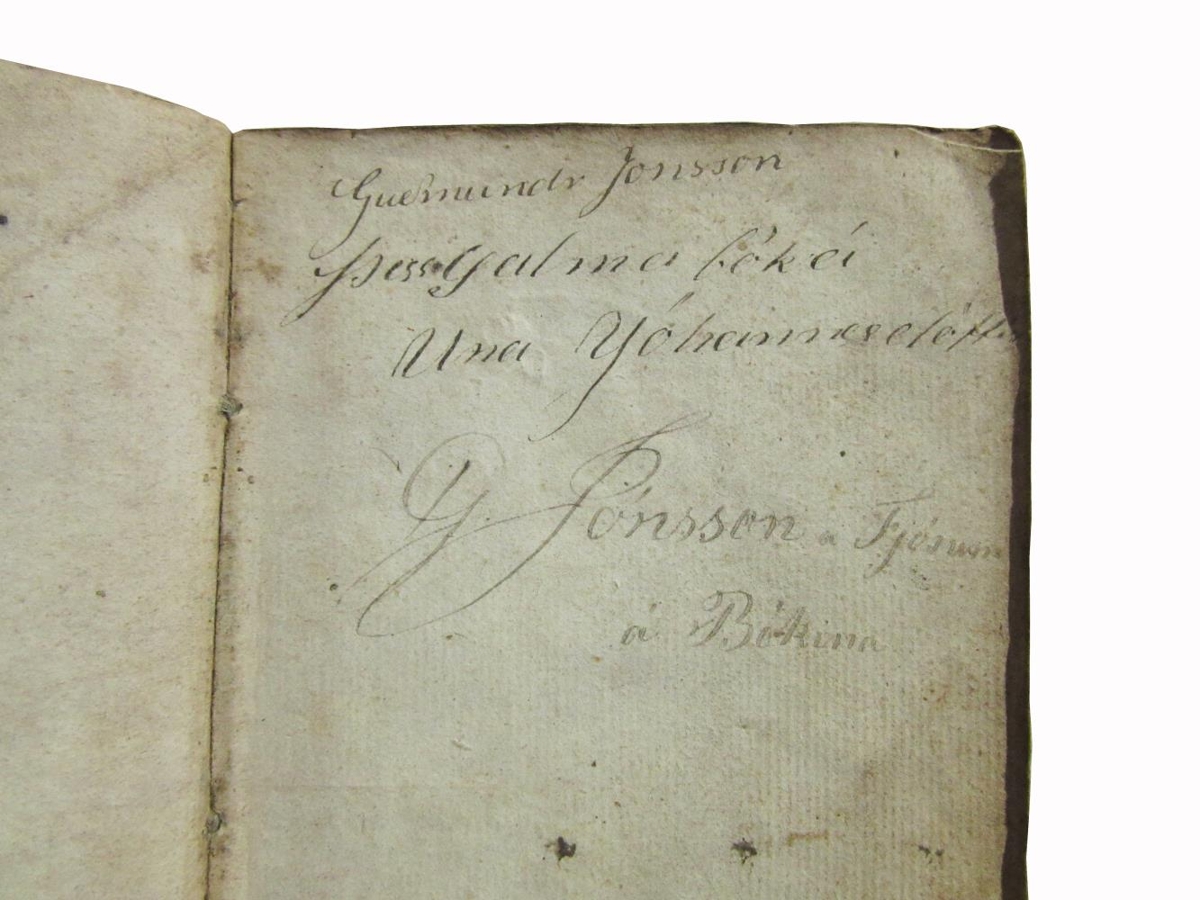 Guðmundr Jonsson
þessa Galma bók á
Una Yóhannesdóttir
G. Jónsson a Fjósum
á Bókina